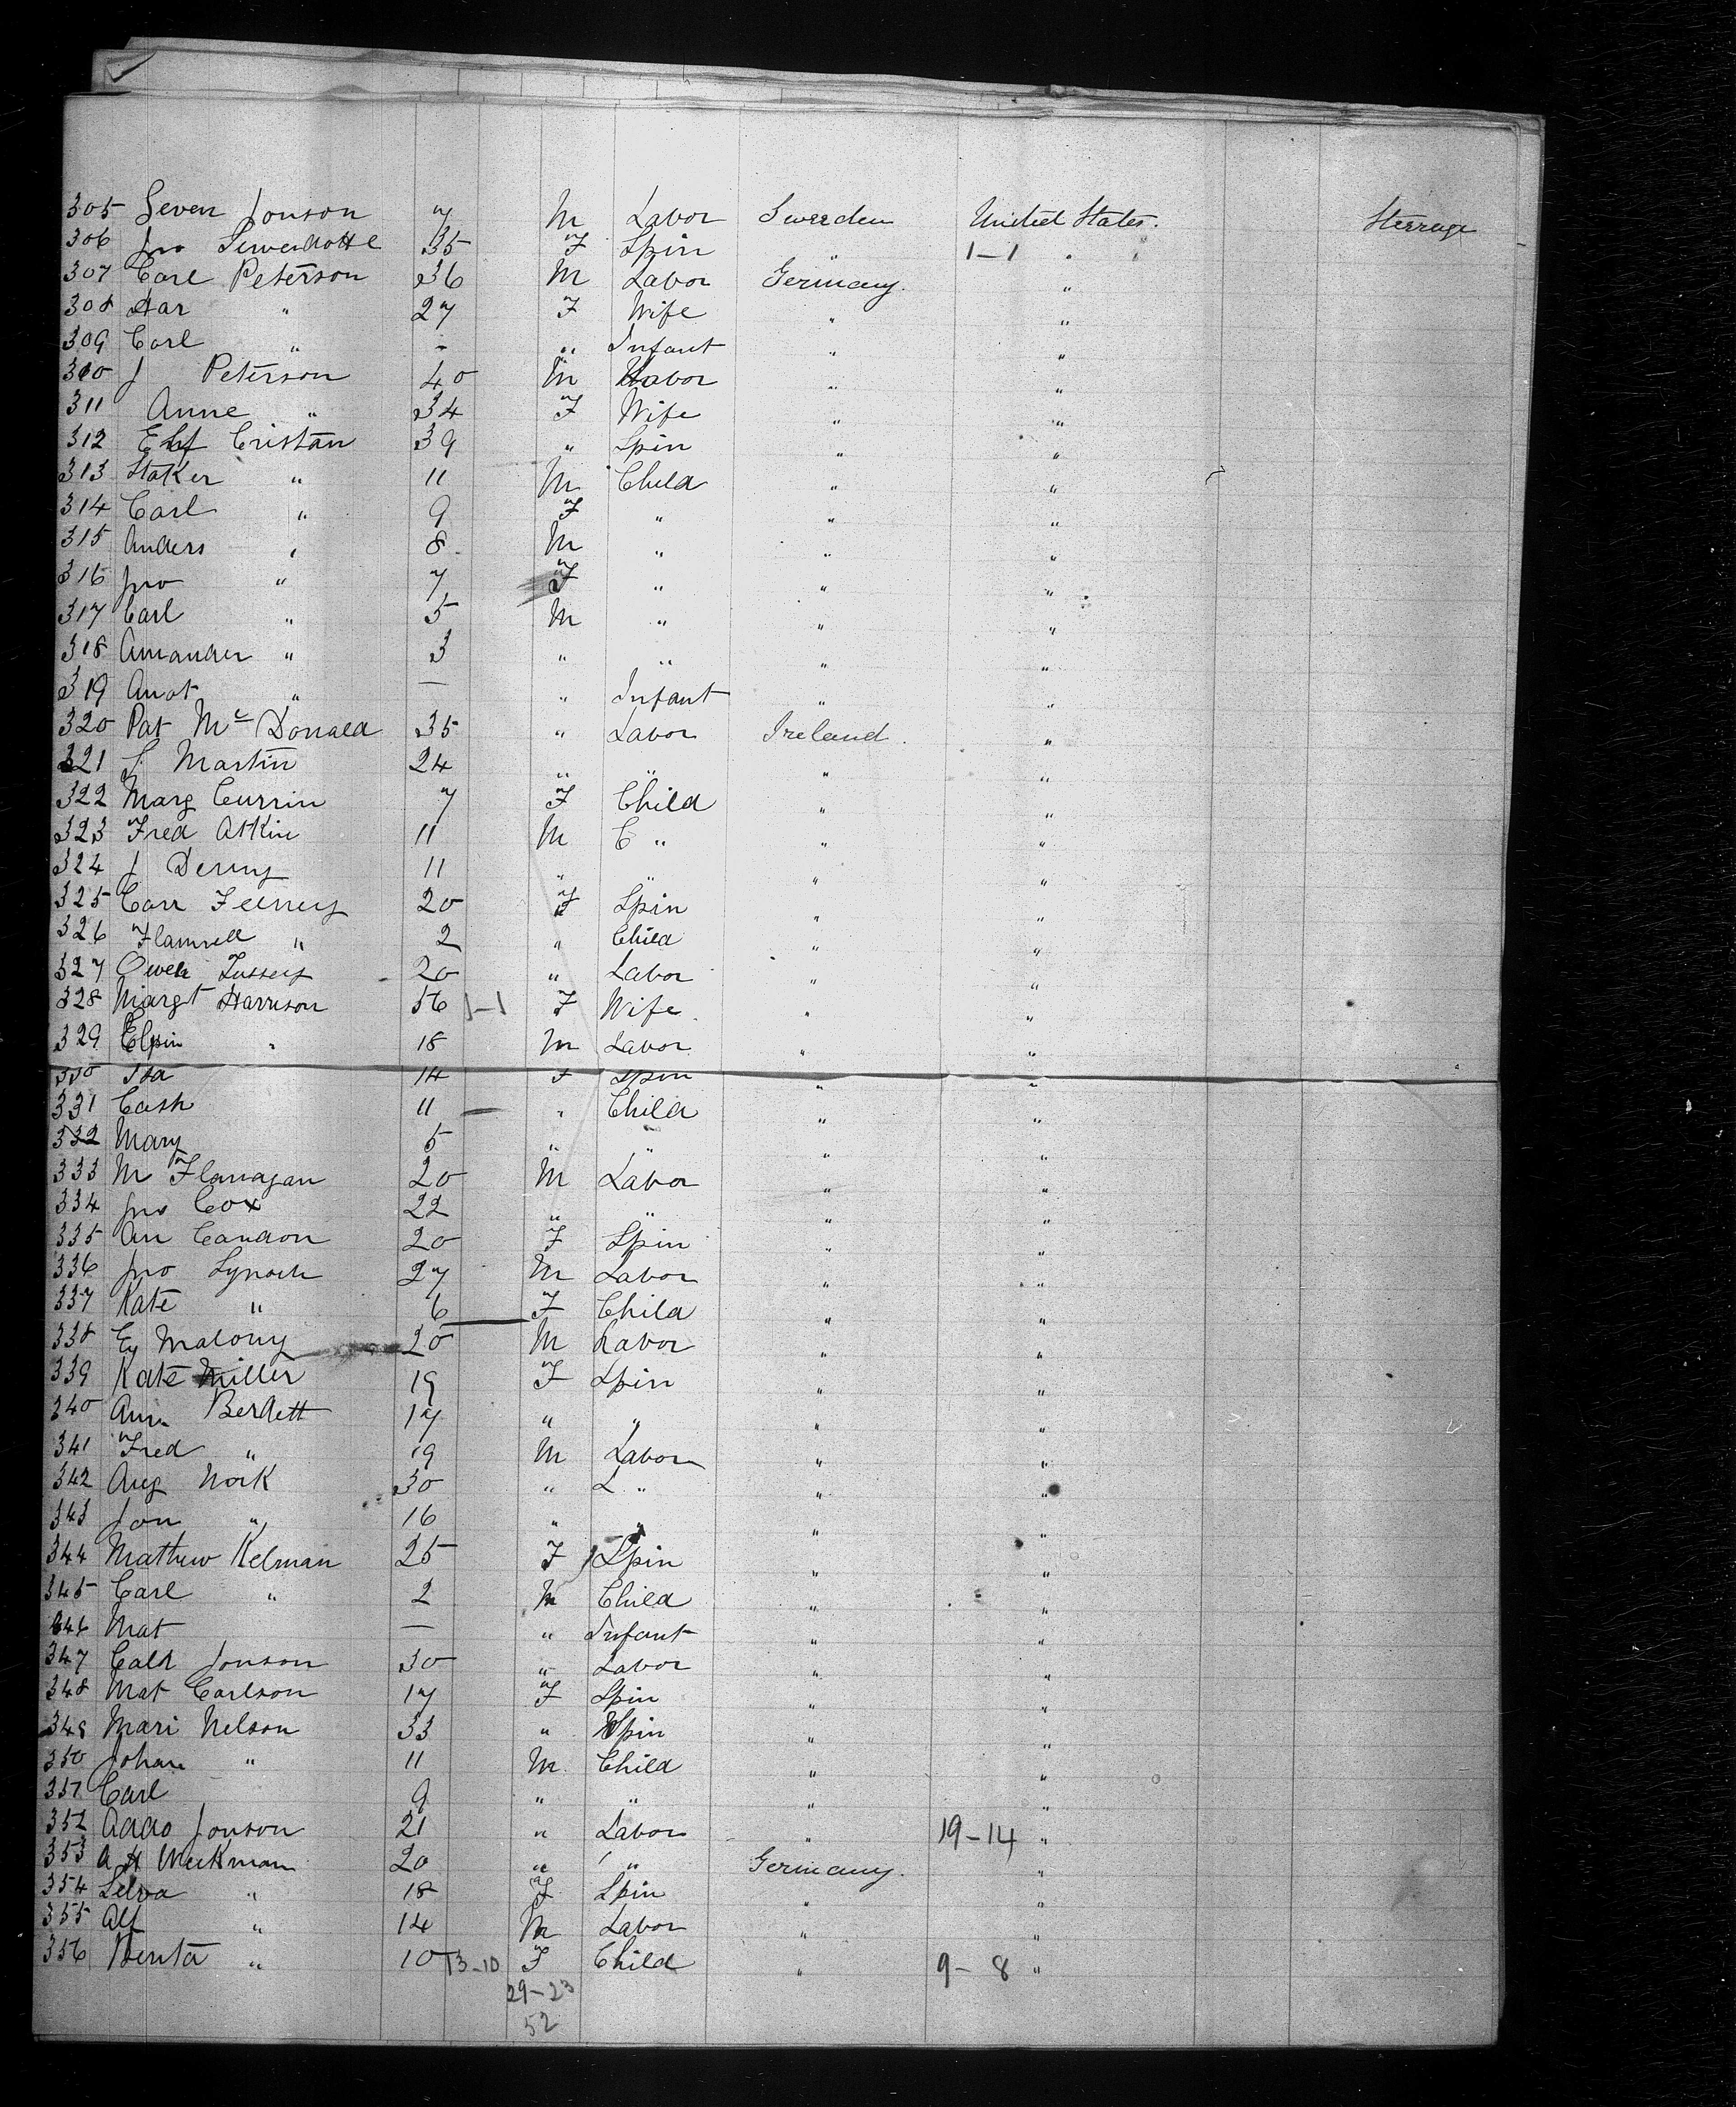 305 Seven Jonson 7 M Labor Sweeden United States. Sterrage
306 Jno 35 F Spin " 1-1 "
307 Carl Peterson 36 M Labor Germany. "
308 Har " 27 F Wife " "
309 Carl " - " Infant " "
310 J Peterson 40 M Labor " "
311 Anne " 34 F Wife " "
312 Elsf Cristan 39 " Spin " "
313 Staker " 11 M Child " "
314 Carl " 9 F " " "
315 Anders " 8 M " " "
316 Jno " 7 F " " "
317 Carl " 5 M " " "
318 Amander " 3 " " " "
319 Anot " — " Infant " "
320 Pat Mc Donald 35 " Labor Ireland. "
321 S Martin 24 " " " "
322 Marg Currin 7 F Child " "
323 Fred Atkin 11 M C " " "
324 J Derny 11 " " " "
325 Carr Feeney 20 F Spin " "
326 " 2 " Child " "
327 Owen 20 " Labor " "
328 Margt Harrison 56 1-1 F Wife " "
329 Elpin " 18 M Labor " "
330 Ida 14 F Spin " "
331 Cash 11 " Child " "
332 Mary 5 " " " "
333 M Flanagan 20 M Labor " "
334 Jno Cox 22 " " " "
335 An Candon 20 F Spin " "
336 Jno Lynoch 27 M Labor " "
337 Kate " 6 F Child " "
338 Ey Malony 20 M Labor " "
339 Kate Miller 19 F Spin " "
340 Ann Berdett 17 " " " "
341 Fred " 19 M Labor " "
342 Aug Nork 30 " L " " "
343 Jon " 16 " " " "
344 Mathew Kelman 25 F Spin " "
345 Carl " 2 M Child " "
346 Mat — " Infant " "
347 Calh Jonson 30 " Labor " "
348 Mat Carlson 17 F Spin " "
349 Mari Nelson 33 " Spin " "
350 Johan " 11 M. Child " "
351 Carl 9 " " " "
352 Addo Jonson 21 " Labor " 19-14 "
353 A H Weekman 20 " " Germany. "
354 Selva " 18 F Spin " "
355 Alf " 14 M Labor " "
356 Benta " 10 13-10 F Child " 9-8 "
29-23
52